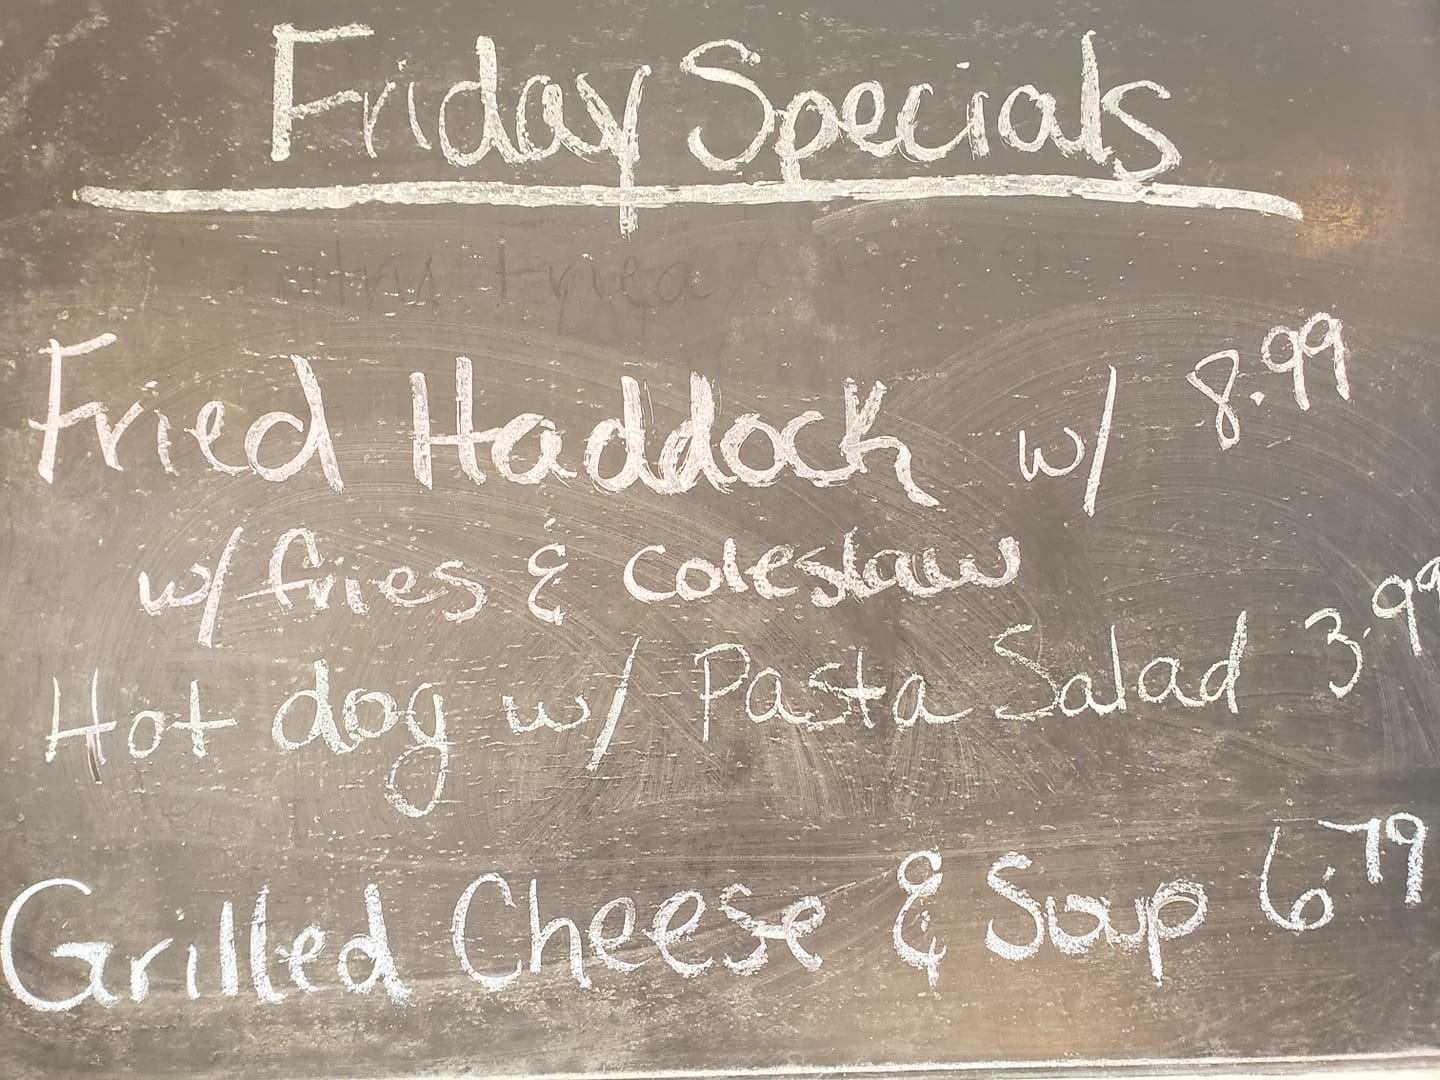 Friday Specials
Fried Haddock w/ 8.99
w/ fries & coleslaw
Hot dog w/ Pasta Salad 3.99
Grilled Cheese & Soup 6.79